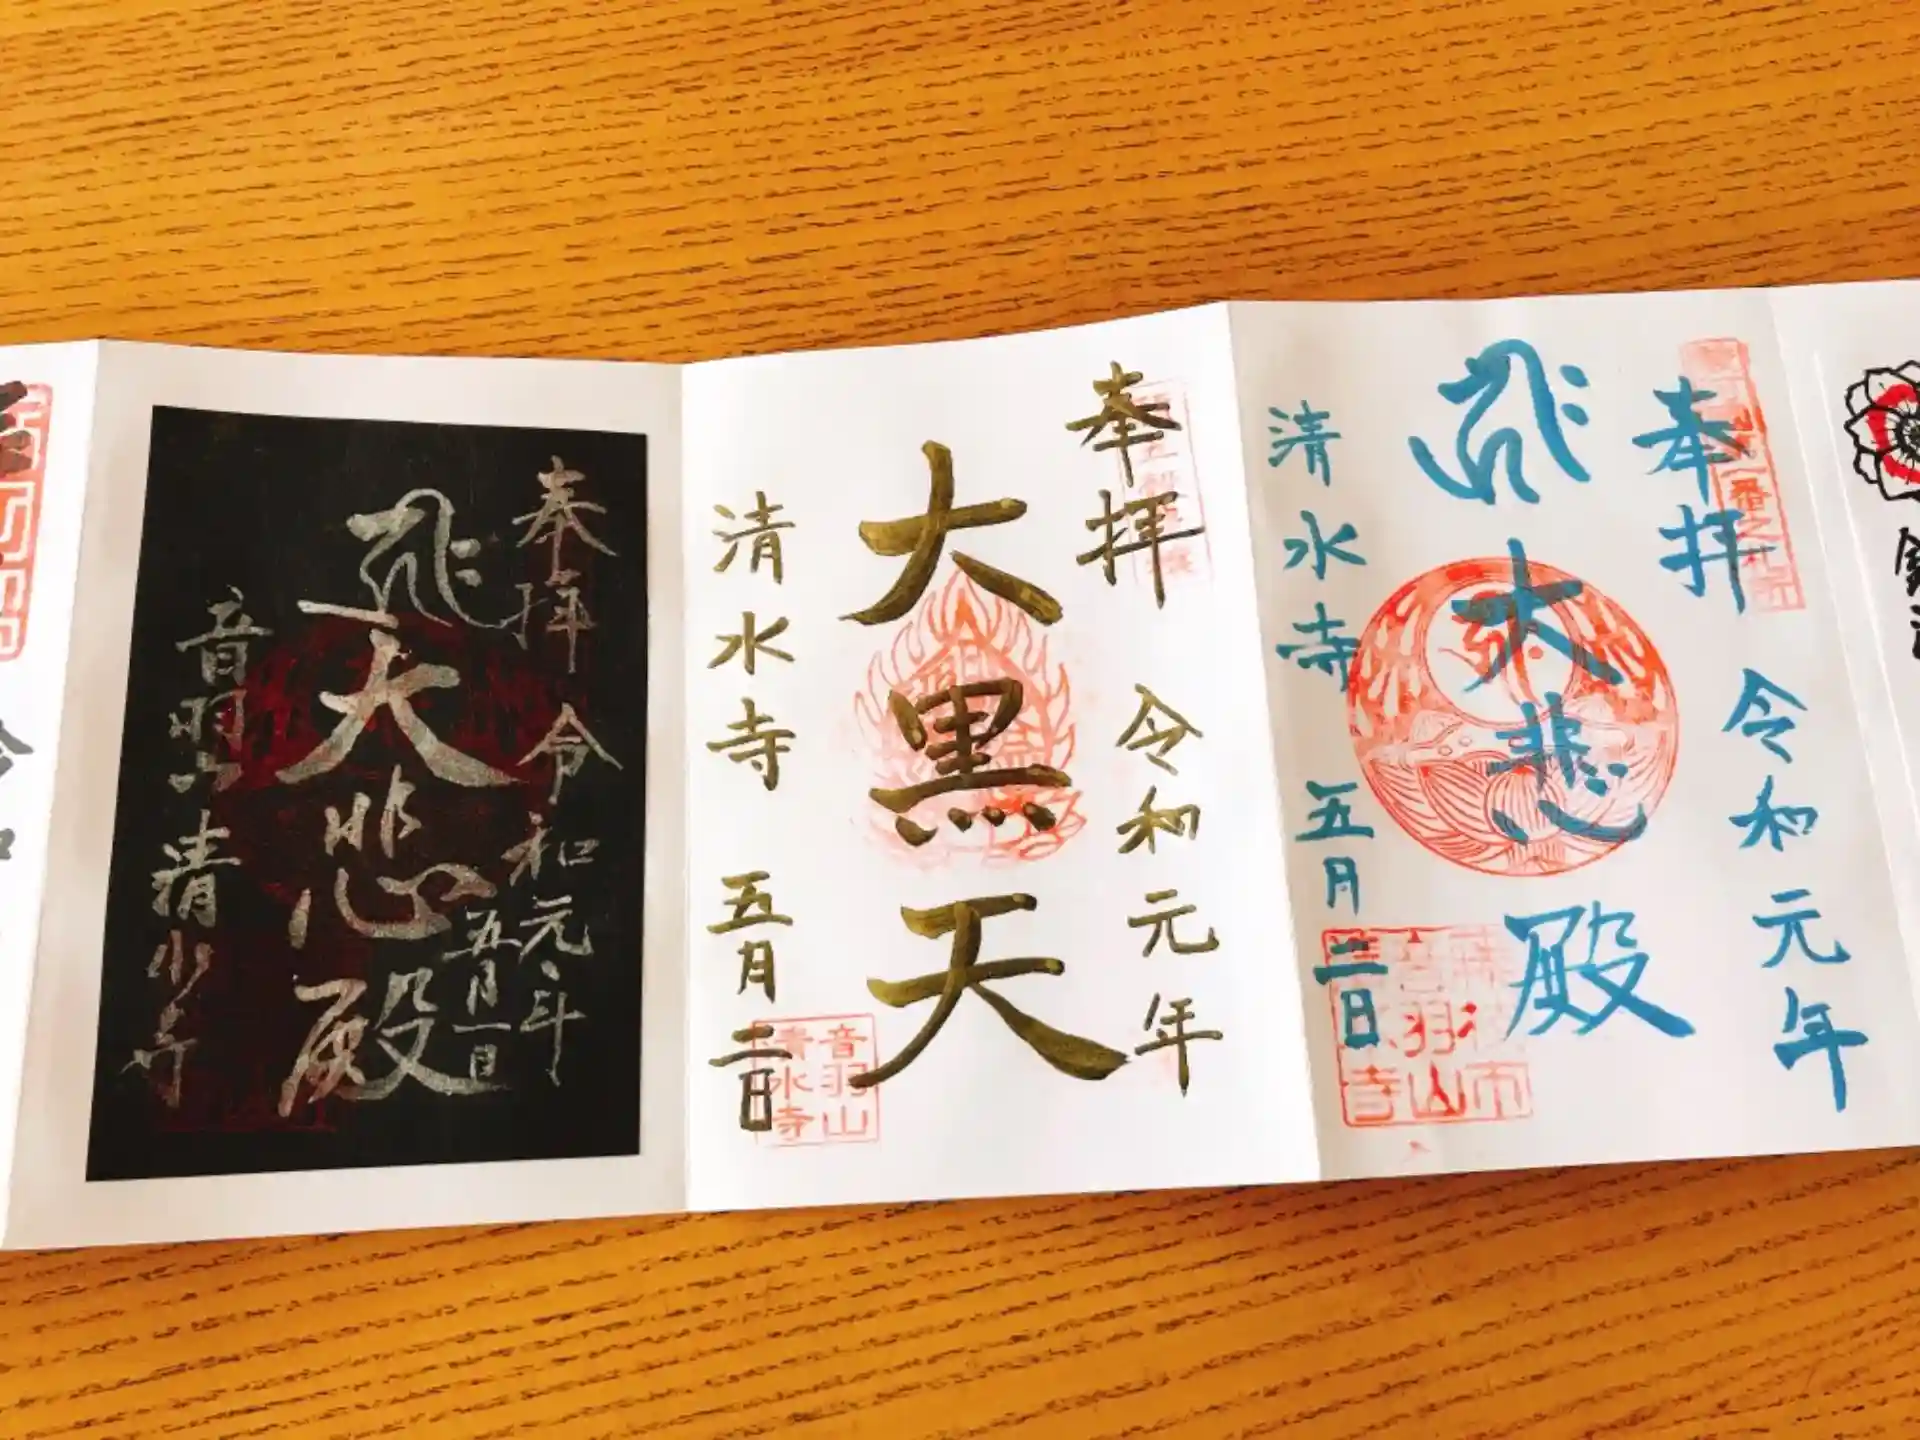 奉拝
令和元年
五月一日
大悲殿
音羽山清水寺
奉拝
令和元年
大黒天
清水寺
五月二日
音羽山
清水寺
奉拝
令和元年
大悲殿
清水寺
五月二日
令和